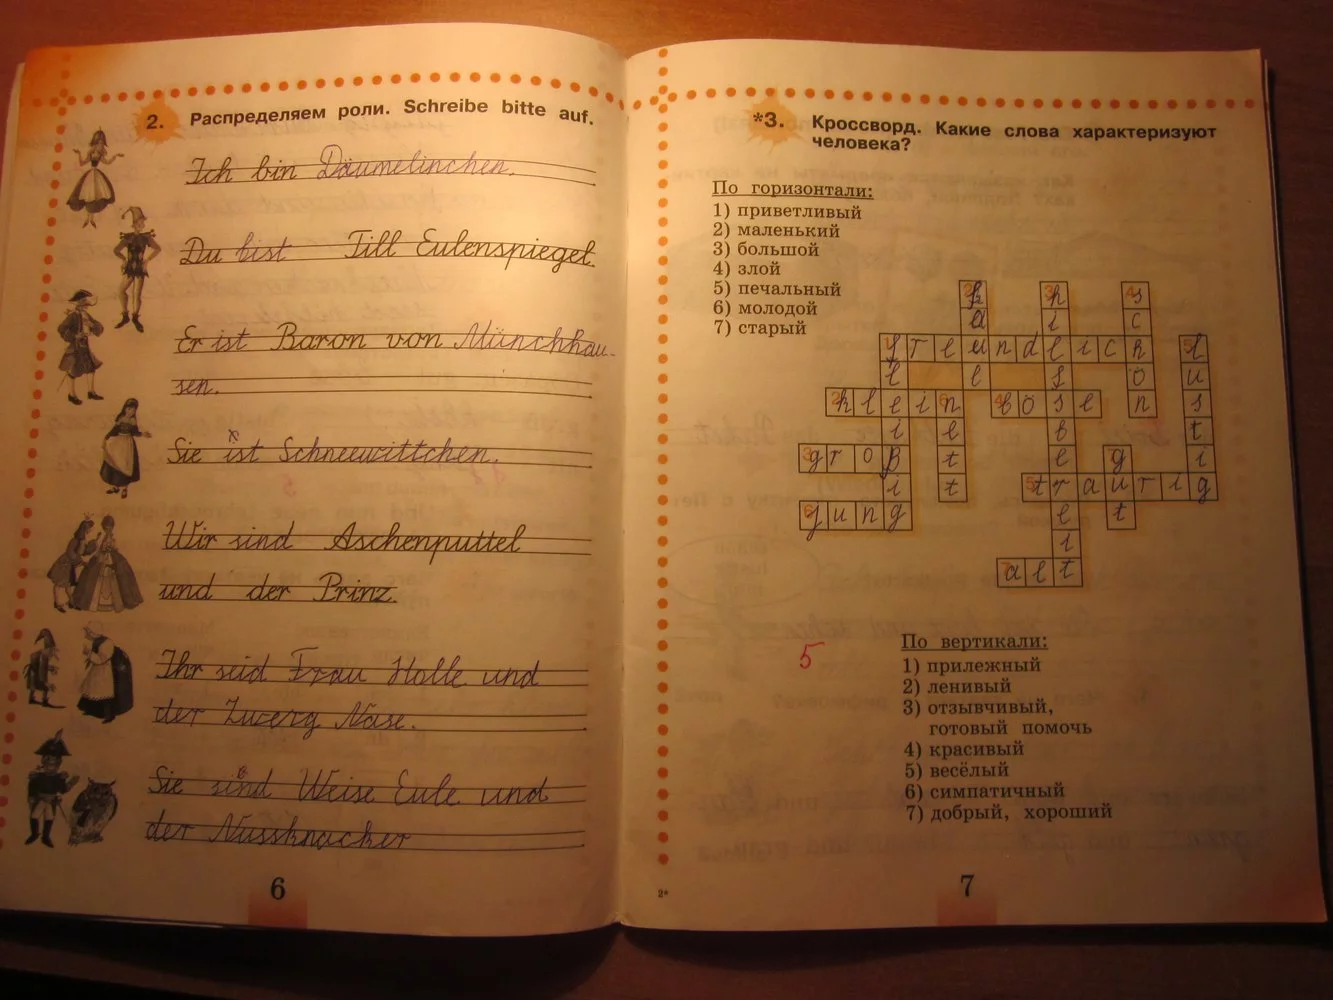 2. Распределяем роли. Schreibe bitte auf.
Ich bin Däumelinchen.
Du bist Till Eulenspiegel.
Er ist Baron von Münchhau-
sen.
Sie ist Schneewittchen.
Wir sind Aschenputtel
und der Prinz.
Ihr seid Frau Holle und
der Zwerg Nase.
Sie sind Weise Eule und
der Nussknacker
6
*3. Кроссворд. Какие слова характеризуют
человека?
По горизонтали:
1) приветливый
2) маленький
3) большой
4) злой
5) печальный
6) молодой
7) старый
freundlich
klein
böse
groß
traurig
jung
alt
fleißig
faul
hilfsbereit
schön
lustig
nett
gut
5
По вертикали:
1) прилежный
2) ленивый
3) отзывчивый,
готовый помочь
4) красивый
5) весёлый
6) симпатичный
7) добрый, хороший
2*
7